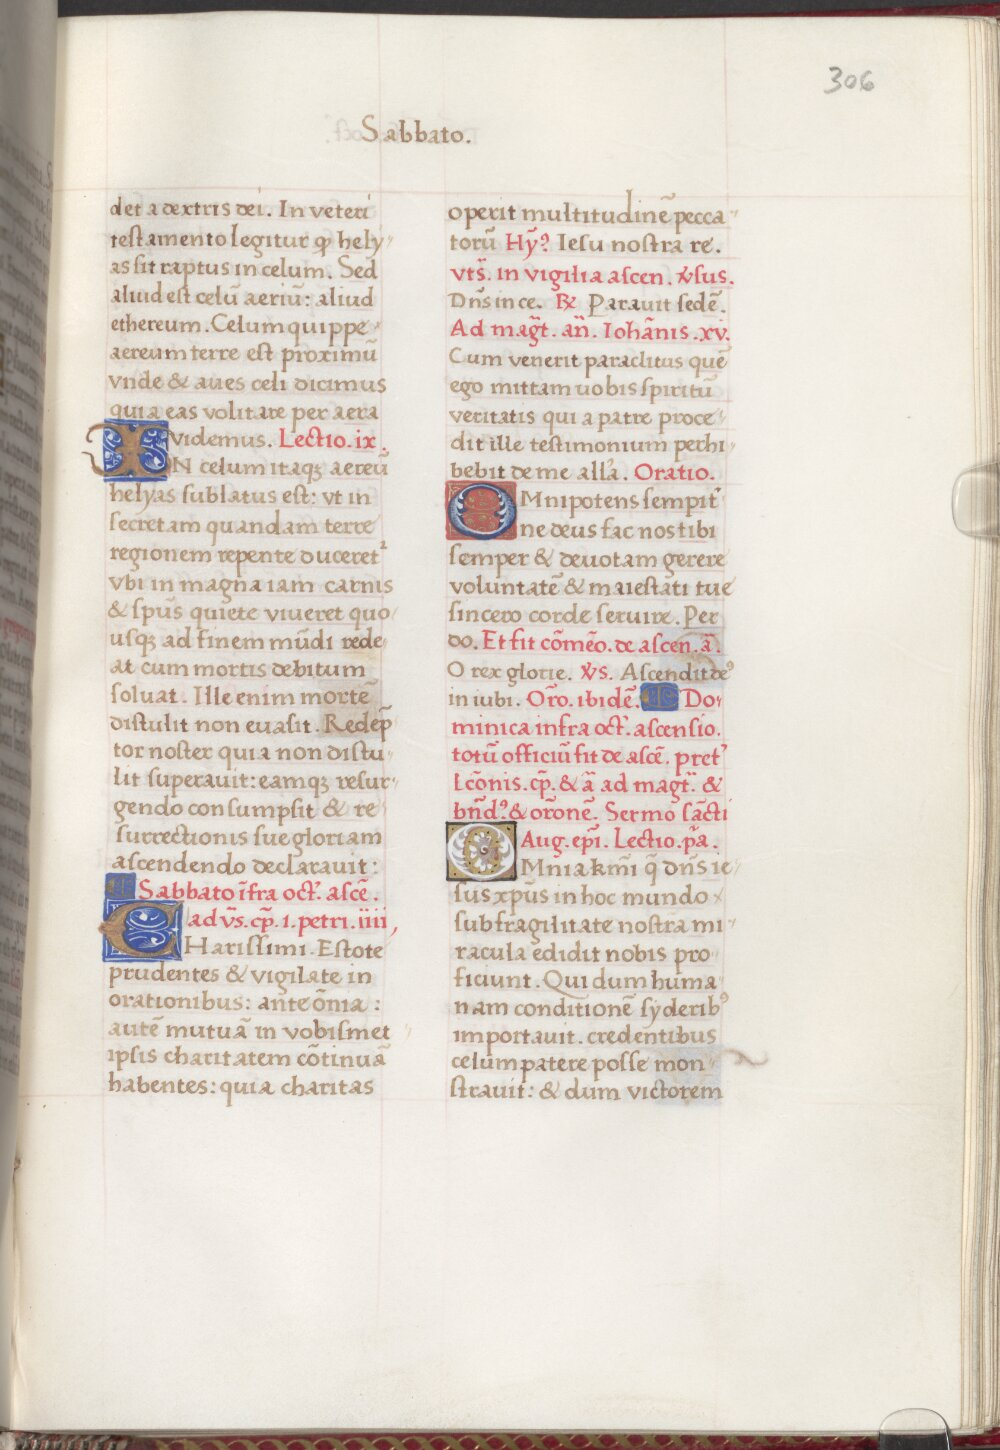 306
Sabbato.
det a dextris dei. In veteri
testamento legitur ꝙ hely
as sit raptus in celum. Sed
aliud est celū aeriū: aliud
ethereum. Celum quippe
aereum terre est proximū
vnde & aues celi dicimus
quia eas volitare per aera
videmus. Lectio .ix.
IN celum itaqꝫ aereū
helyas sublatus est: vt in
secretam quandam terre
regionem repente duceret᷑
vbi in magna iam carnis
& sp̄us quiete viueret quo
usqꝫ ad finem mūdi rede
at cum mortis debitum
soluat. Ille enim mortē
distulit non euasit. Redēp
tor noster quia non distu
lit superauit: eamqꝫ resur
gendo consumpsit & re
surrectionis sue gloriam
ascendendo declarauit:
¶ Sabbato īfra oct'. ascē.
ad vs̄. cp̄. 1. petri. iiii,
CHarissimi. Estote
prudentes & vigilate in
orationibus: ante ōnia :
autē mutuā in vobismet
ipsis charitatem cōtinuā
habentes: quia charitas
operit multitudinē pecca
torū Hȳ? Iesu nostra re.
vts̄. in vigilia ascen. ℣sus.
Dn̄s in ce. ℞ Parauit sedē.
Ad magt̄. an̄. Iohānis .xv.
Cum venerit paraclitus quē
ego mittam uobis spiritū
veritatis qui a patre proce
dit ille testimonium perhi
bebit de me all'a. Oratio.
OMnipotens sempit'
ne deus fac nos tibi
semper & deuotam gerere
voluntatē & maiestati tue
sincero corde seruire. Per
do. Et fit cōmēo. de ascen. ā.
O rex glorie. ℣s. Ascendit de᷒
in iubi. Or̄o. ibidē. ¶ Do
minica infra oct'. ascensio.
totū officiū fit de ascē. pret'
lc̄onis. cp̄. & ā ad magt̄. &
bn̄d᷒. & or̄onē. Sermo sācti
Aug. ep̄i. Lectio. p̄a.
OMnia km̄i q̄ dn̄s ie
sus xp̄us in hoc mundo
sub fragilitate nostra mi
racula edidit nobis pro
ficiunt. Qui dum huma
nam conditionē syderib᷒
importauit. credentibus
celum patere posse mon
strauit: & dum victorem